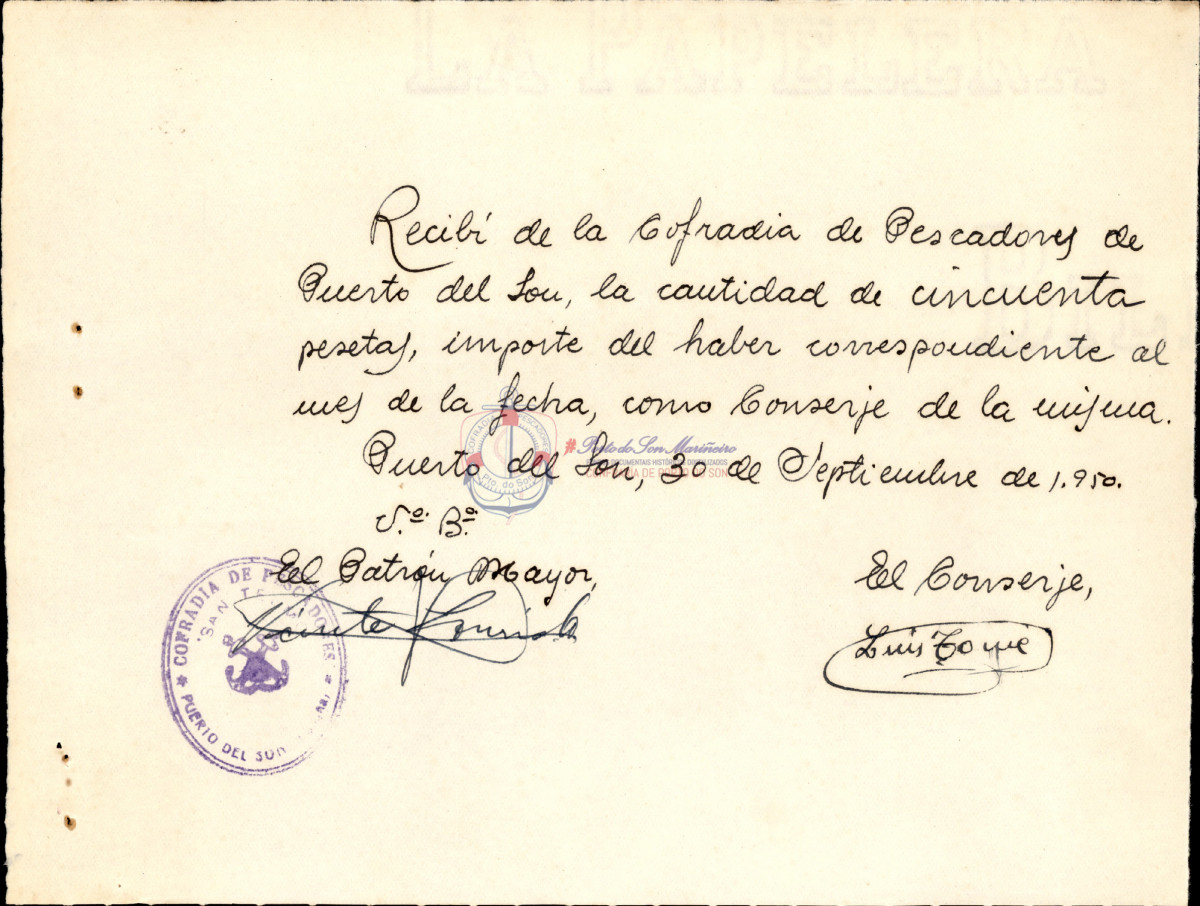 Recibí de la Cofradia de Pescadores de
Puerto del Son, la cantidad de cincuenta
pesetas, importe del haber correspondiente al
mes de la fecha, como Conserje de la misma.
Puerto del Son, 30 de Septiembre de 1.950.
V.º B.º
El Patrón Mayor,
El Conserje,
Vicente
Luis Tomé
COFRADIA DE PESCADORES
SAN
PUERTO DEL SON
COFRADIA PESCADORES
Pto. do Son
#Porto do Son Mariñeiro
DOCUMENTAIS DIGITALIZADOS
COFRADÍA DE PORTO DO SON